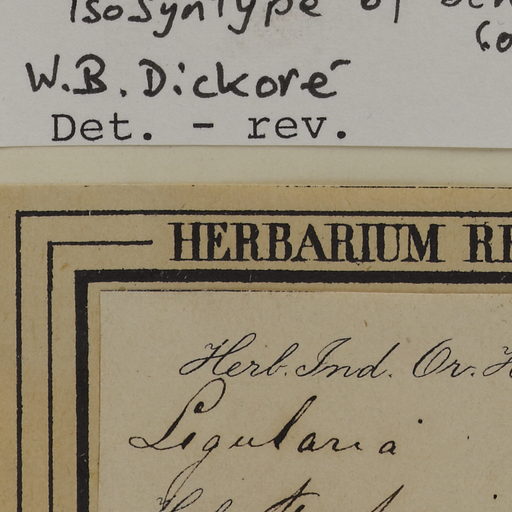 Isosyntype of
W.B. Dickoré
Det. - rev.
HERBARIUM
Herb. Ind. Or.
Ligularia